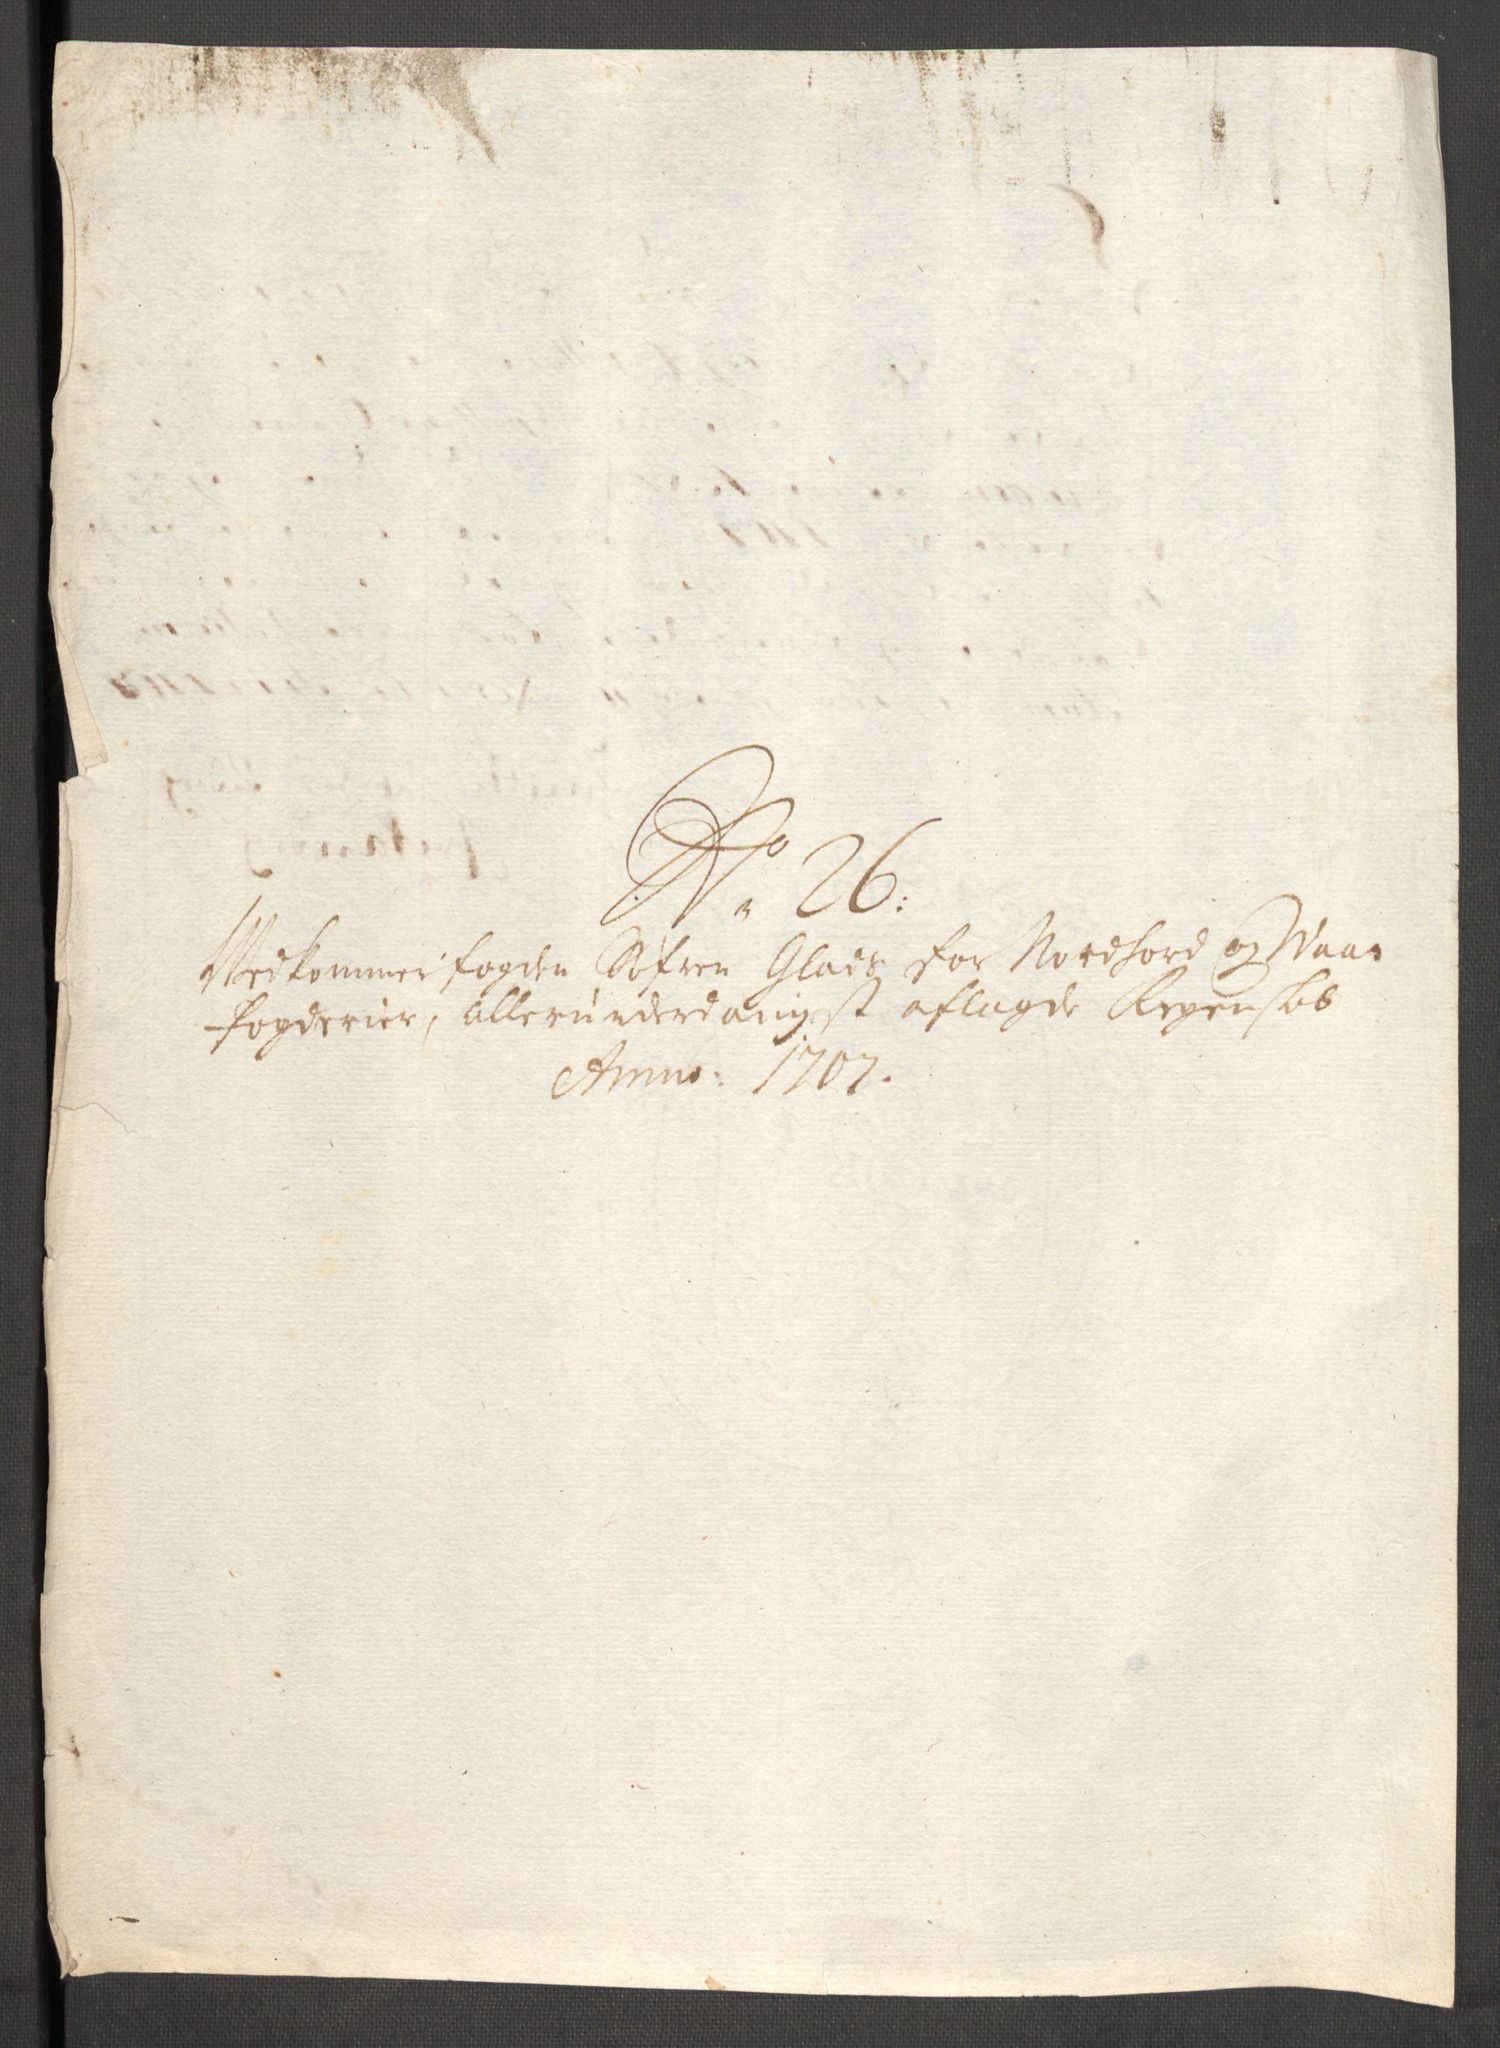 No. 26:
Vedkommer fogden Søfren Glads for Nordhord og Waas
fogderier, allerunderdanigst aflagde Regenskab
Anno: 1707.